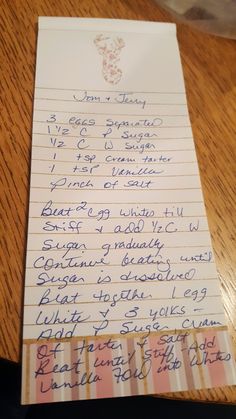 Tom + Jerry
3 eggs separated
1 1/2 C P Sugar
1/2 C W Sugar
1 tsp Cream tarter
1 tsp Vanilla
Pinch of salt
Beat 2 egg whites till
Stiff + add 1/2 C. W
Sugar gradually
Continue beating until
Sugar is dissolved
Beat together 1 egg
White + 3 yolks -
Add P Sugar Cream
Of tarter + Salt
Beat until stiff - Add
Vanilla Fold into Whites